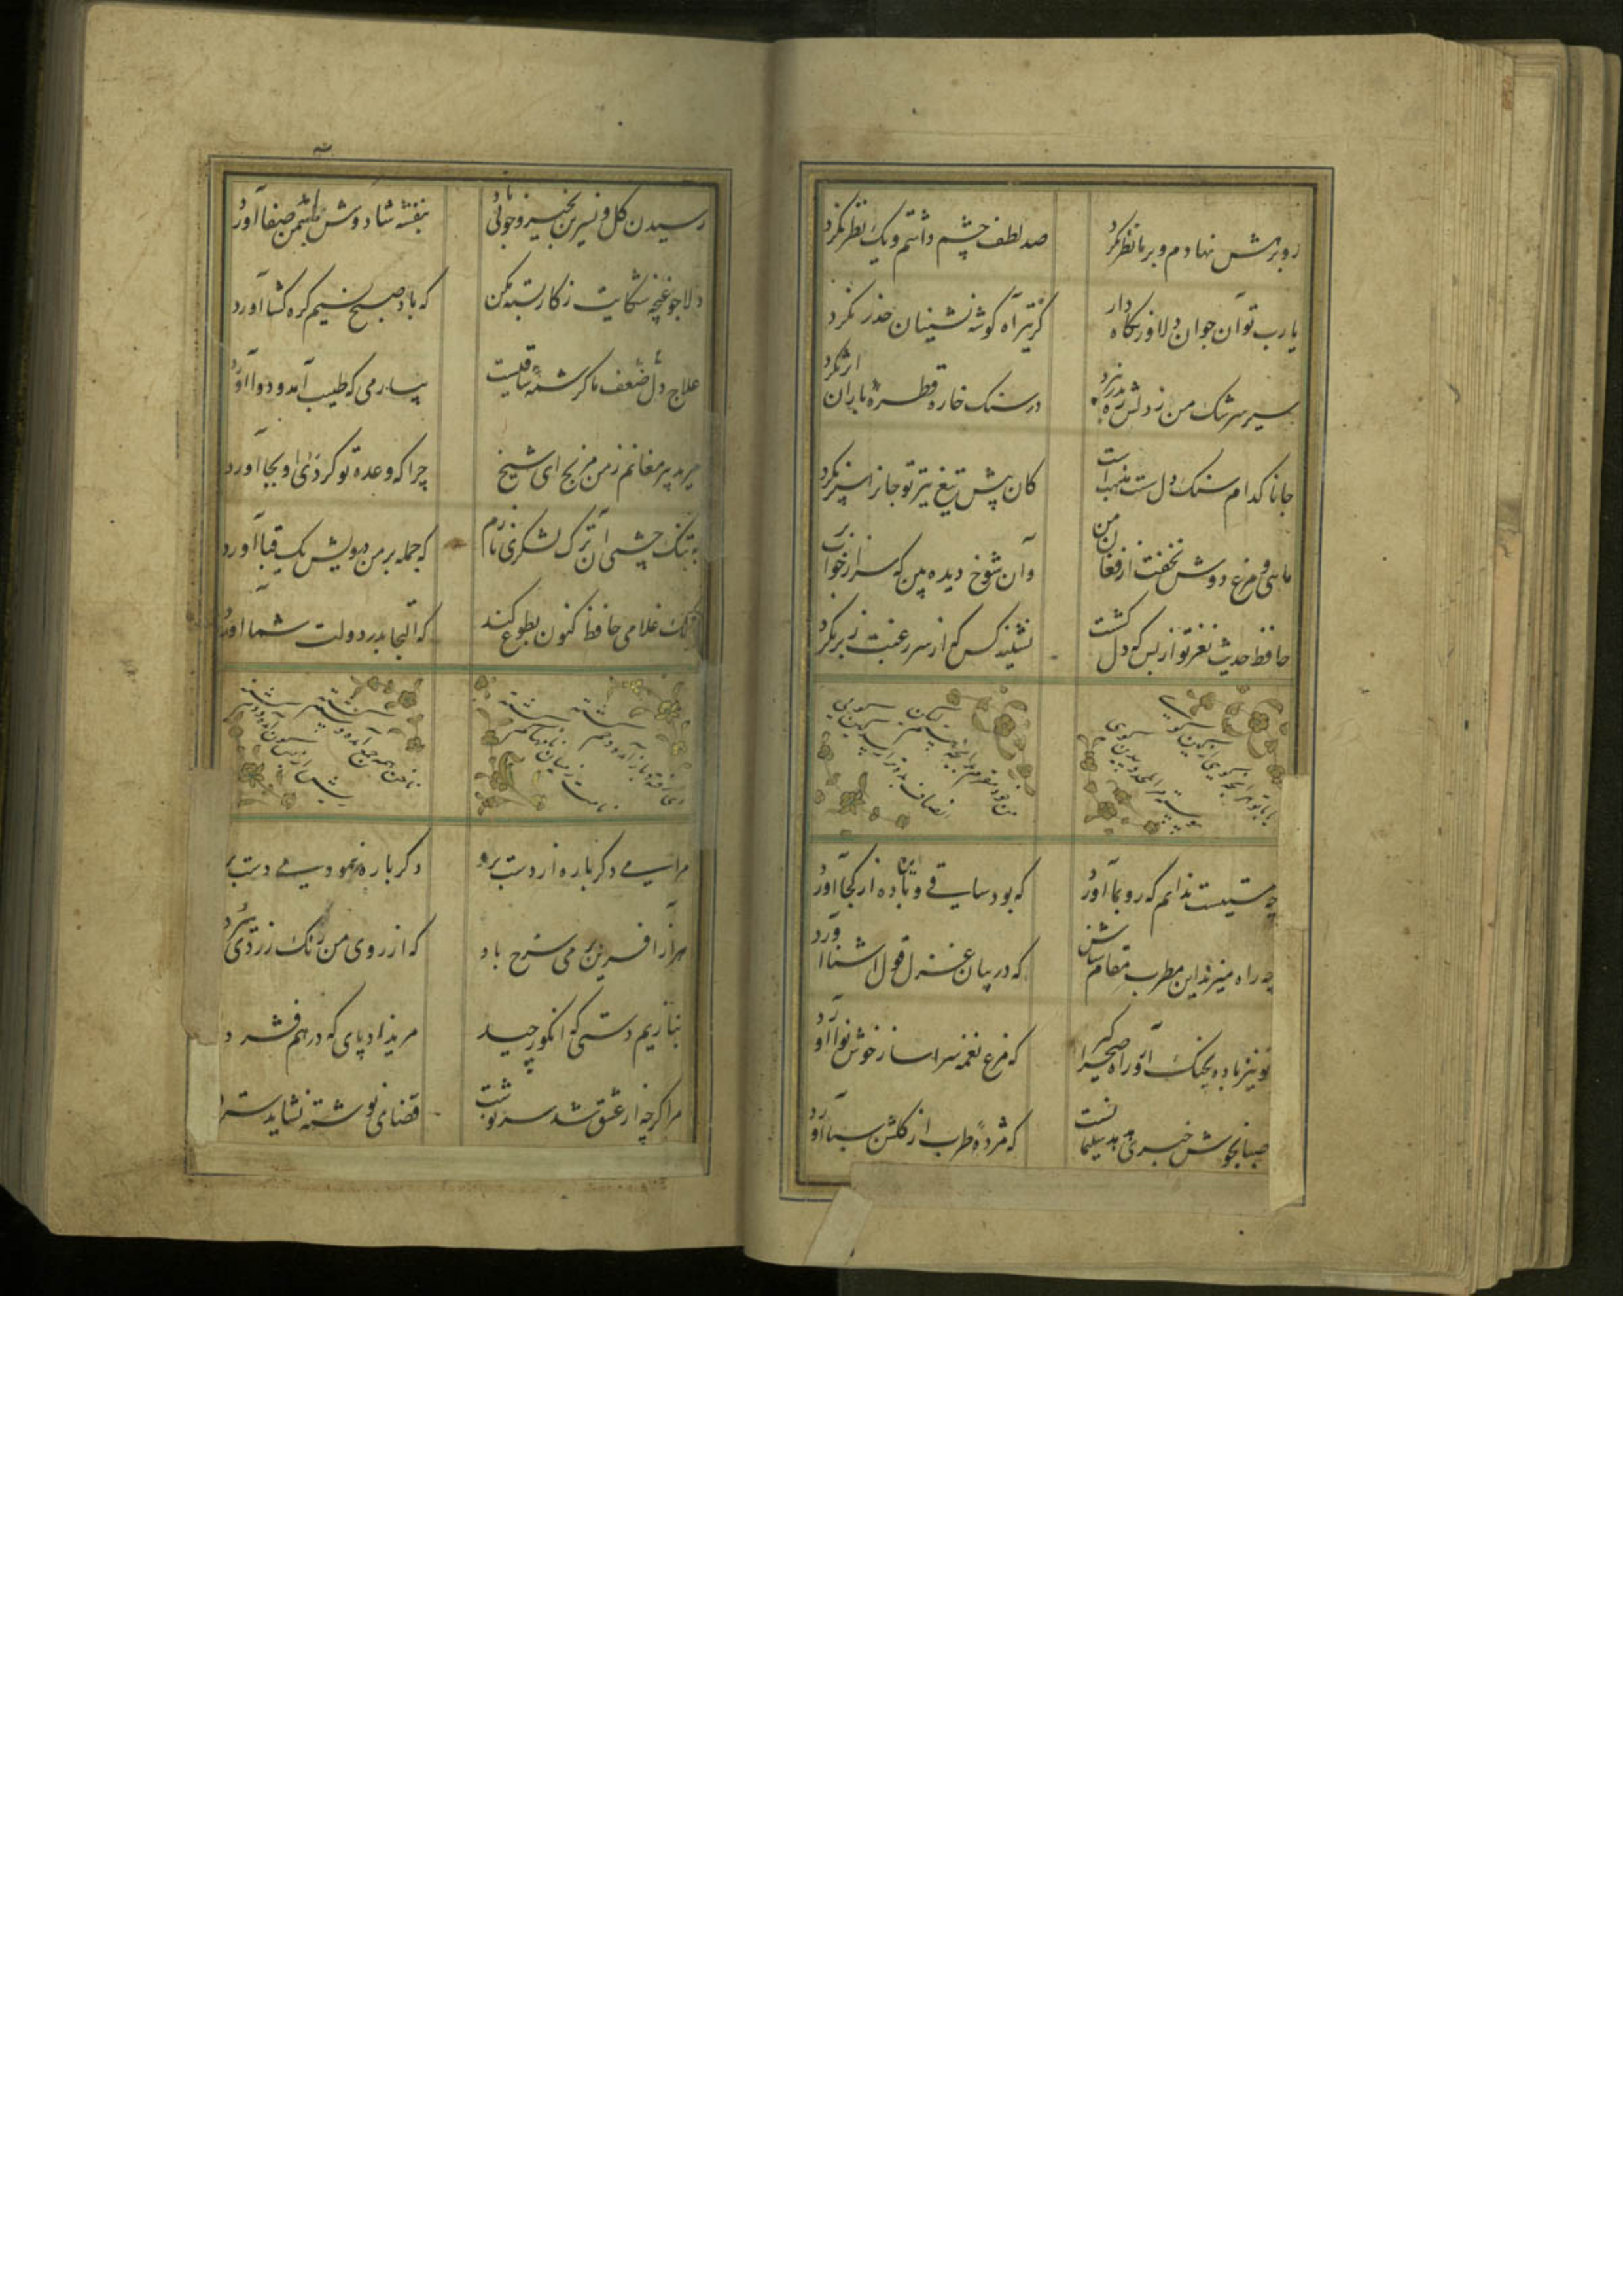 رو بر رهش نهادم و بر ما نظر نکرد صد لطف چشم داشتم و یک نظر نکرد
یا رب تو آن جوان دلاور نگاه دار کز تیر آه گوشه نشینان حذر نکرد
سیل سرشک من ز دلش ره بدر نبرد در سنک خاره قطره باران اثر نکرد
جانا کدام سنک دل ست مذهب است کان پیش تیغ تیز تو جانرا سپر نکرد
ماهی و مرغ دوش نخفت از فغان من وان شوخ دیده بین که سر از خواب بر نکرد
حافظ حدیث نغز تو از بس که دل گشت نشنید کس که از سر رغبت زبر نکرد
چه مستیست ندانم که رو بما آورد که بود ساقی و این باده از کجا آورد
چه راه میزند این مطرب مقام شناس که در میان غزل قول اشنا آورد
تو نیز باده بچنک آر و راه صحرا گیر که مرغ نغمه سرا ساز خوش نوا آورد
صبا بخوش خبری هدهد سلیمانست که مژده طرب از گلشن سبا آورد
رسیدن کل و نسرین بخیر و خوبی باد بنفشه شاد و وش آمد سمن صفا آورد
دلا چو غنچه شکایت ز کار بسته مکن که باد صبح نسیم کره کشا آورد
علاج ضعف دل ما کرشمه ساقیست بر آر سر که طبیب آمد و دوا آورد
مرید پیر مغانم ز من مرنج ای شیخ چرا که وعده تو کردی و او بجا آورد
به تنک چشمی آن ترک لشکری نازم که حمله بر من درویش یک قبا آورد
فلک غلامی حافظ کنون بطوع کند که التجا بدر دولت شما آورد
مرا می دکر باره از دست برد دکر باره نمود می دست برد
هزار آفرین بر می سرخ باد که از روی من رنک زردی ببرد
بنازیم دستی که انکور چید مریزاد پای که درهم فشرد
مرا کرچه از عشق شد سرنوشت قضای نوشته نشاید سترد